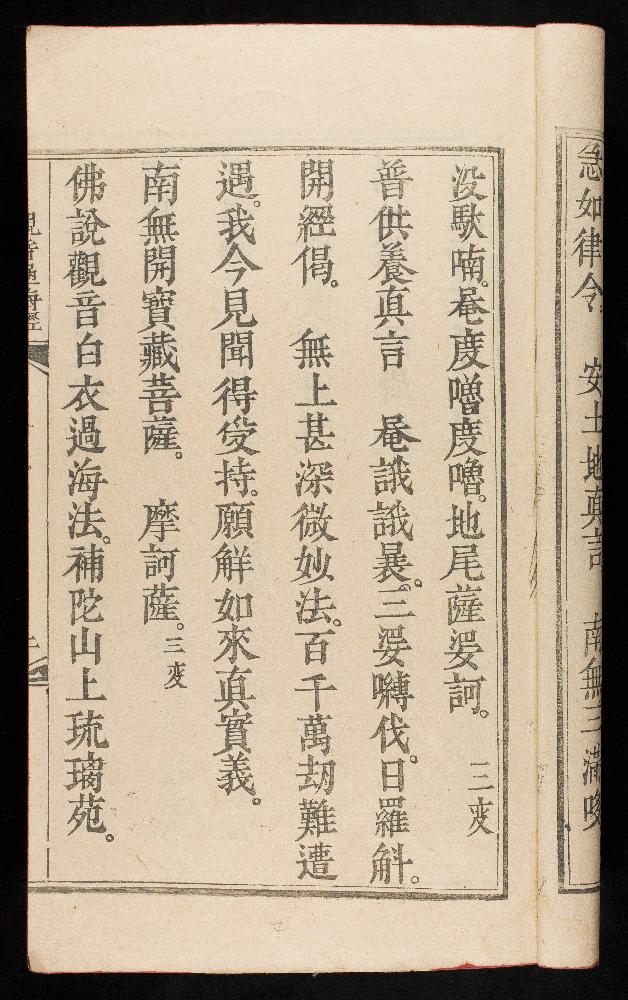 急如律令 安土地真言 南無三滿哆
没馱喃。唵度嚕度嚕。地尾薩婆訶。 三变
普供養真言 唵誐誐曩。三婆嚩伐。日羅斛。
開經偈。 無上甚深微妙法。百千萬劫難遭
遇。我今見聞得受持。願解如來真實義。
南無開寶藏菩薩。 摩訶薩。三变
佛說觀音白衣過海法。補陀山上琉璃苑。